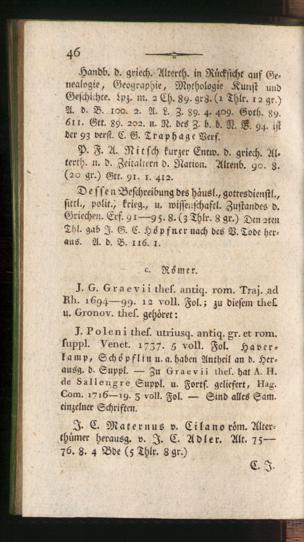 46
Handb. d. griech. Alterth. in Rücksicht auf Ge-
nealogie, Geographie, Mythologie Kunst und
Geschichte. Lpz. m. 2 Ch. 89. gr8. (1 Thlr. 12 gr.)
A. d. B. 100. 2. A. L. Z. 89. 4. 409. Goth. 89.
611. Gtt. 89. 202. u. N. des Z. b. d. N. B. 94. ist
der 93 verst. C. G. Traphage Verf.
P. F. A. Nitsch kurzer Entw. d. griech. Al-
terth. n. d. Zeitaltern d. Nation. Altenb. 90. 8.
(20 gr.) Gtt. 91. 1. 412.
Dessen Beschreibung des häusl., gottesdienstl.,
sittl., polit., krieg., u. wissenschaftl. Zustandes d.
Griechen. Erf. 91—95. 8. (3 Thlr. 8 gr.) Den 2ten
Thl. gab J. G. C. Höpfner nach des V. Tode her-
aus. A. d. B. 116. 1.
c. Römer.
J. G. Graevii thes. antiq. rom. Traj. ad
Rh. 1694—99. 12 voll. Fol.; zu diesem thes.
u. Gronov. thes. gehöret:
J. Poleni thes. utriusq. antiq. gr. et rom.
suppl. Venet. 1737. 5 voll. Fol. Haver-
kamp, Schöpflin u. a. haben Antheil an d. Her-
ausg. d. Suppl. — Zu Graevii thes. hat A. H.
de Sallengre Suppl. u. Forts. geliefert, Hag.
Com. 1716—19. 3 voll. Fol. — Sind alles Sam.
einzelner Schriften.
J. C. Maternus v. Cilano röm. Alter-
thümer herausg. v. J. C. Adler. Alt. 75—
76. 8. 4 Bde (5 Thlr. 8 gr.)
C. J.